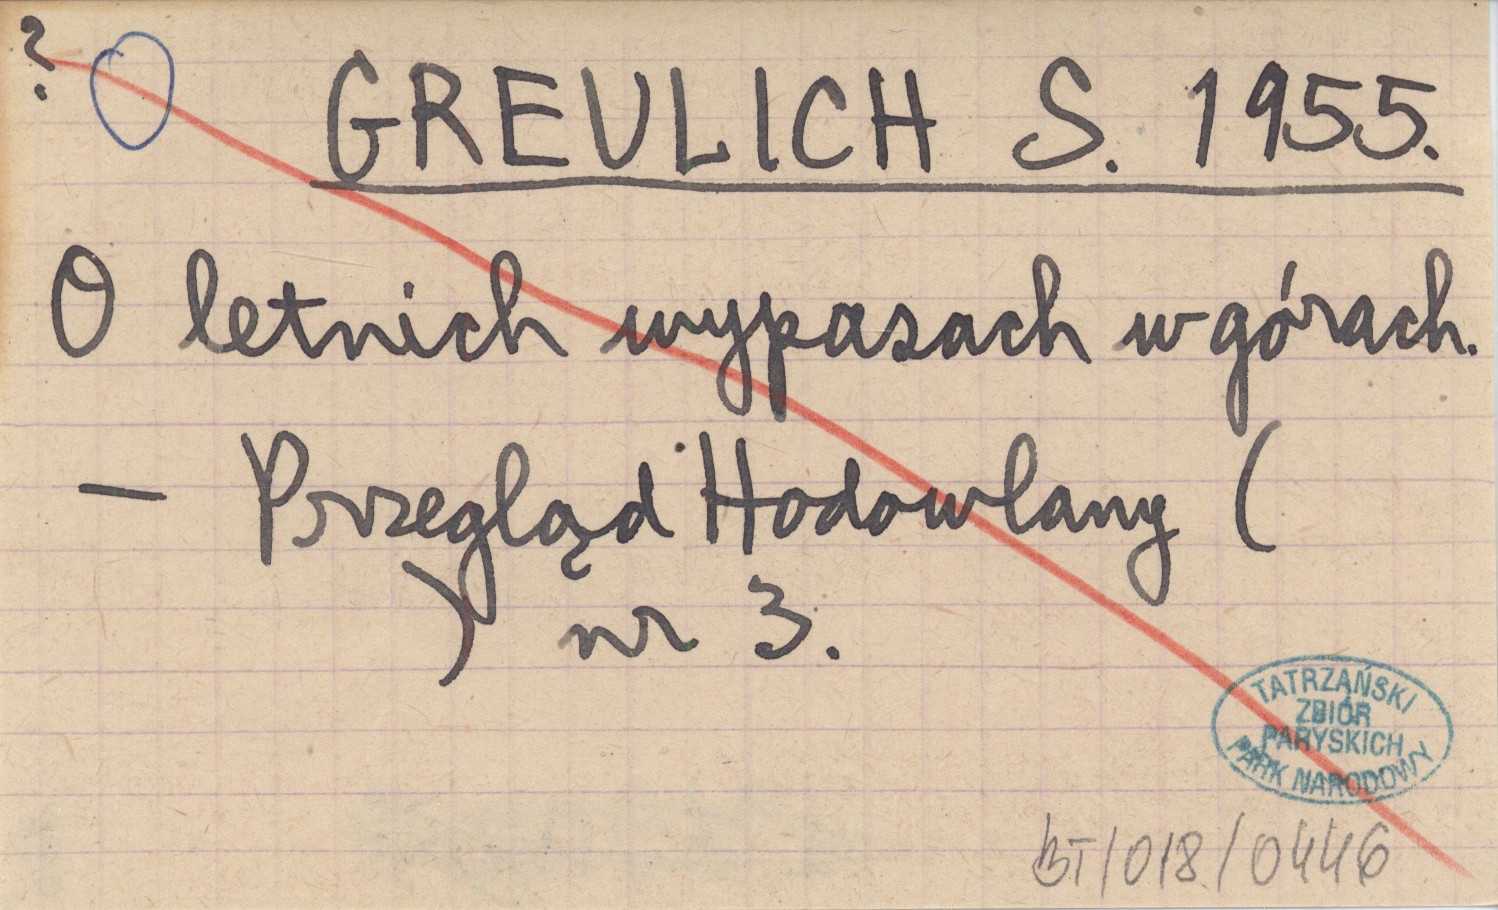 ?
GREULICH S. 1955.
O letnich wypasach w górach.
— Przegląd Hodowlany (
) nr 3.
TATRZAŃSKI
ZBIÓR
PARYSKICH
PARK NARODOWY
BT/018/0446